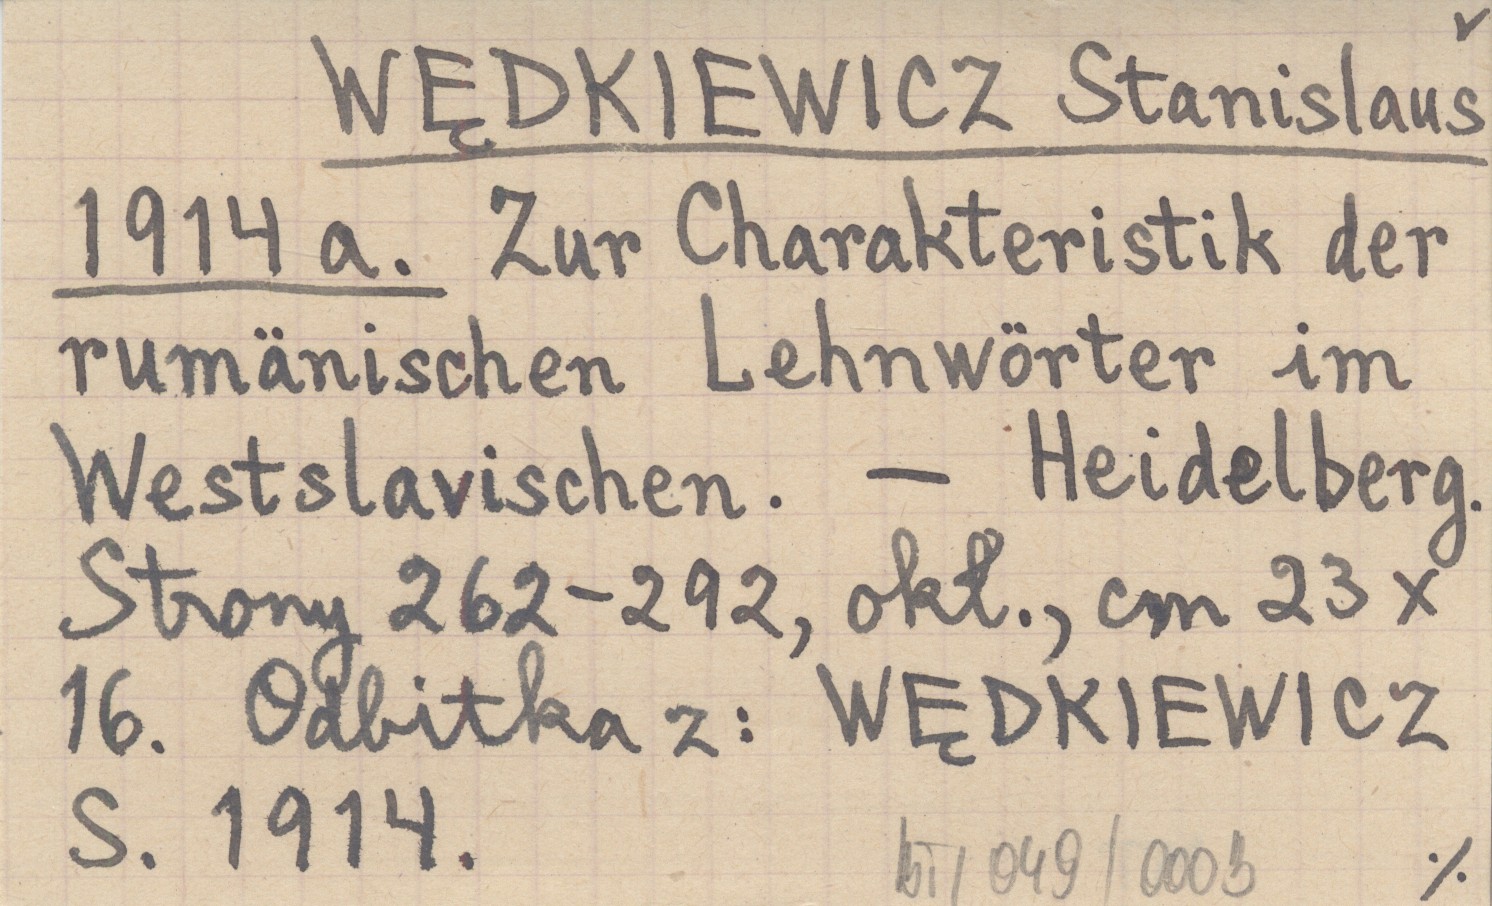 WĘDKIEWICZ Stanislaus
1914 a. Zur Charakteristik der
rumänischen Lehnwörter im
Westslavischen. — Heidelberg.
Strony 262-292, okł., cm 23 x
16. Odbitka z: WĘDKIEWICZ
S. 1914.
049 / 0003 ./.